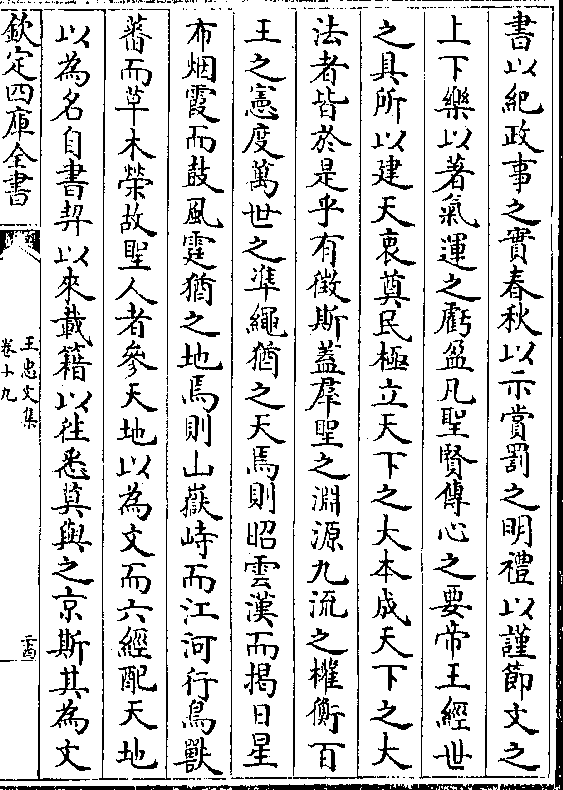 書以紀政事之實春秋以示賞罰之明禮以謹節文之
上下樂以著氣運之虧盈凡聖賢傳心之要帝王經世
之具所以建天衷奠民極立天下之大本成天下之大
法者皆於是乎有徵斯蓋羣聖之淵源九流之權衡百
王之憲度萬世之凖繩猶之天焉則昭雲漢而揭日星
布烟霞而鼓風霆猶之地焉則山嶽峙而江河行鳥獸
蕃而草木榮故聖人者參天地以為文而六經配天地
以為名自書契以來載籍以往悉莫與之京斯其為文
欽定四庫全書
王忠文集
卷十九